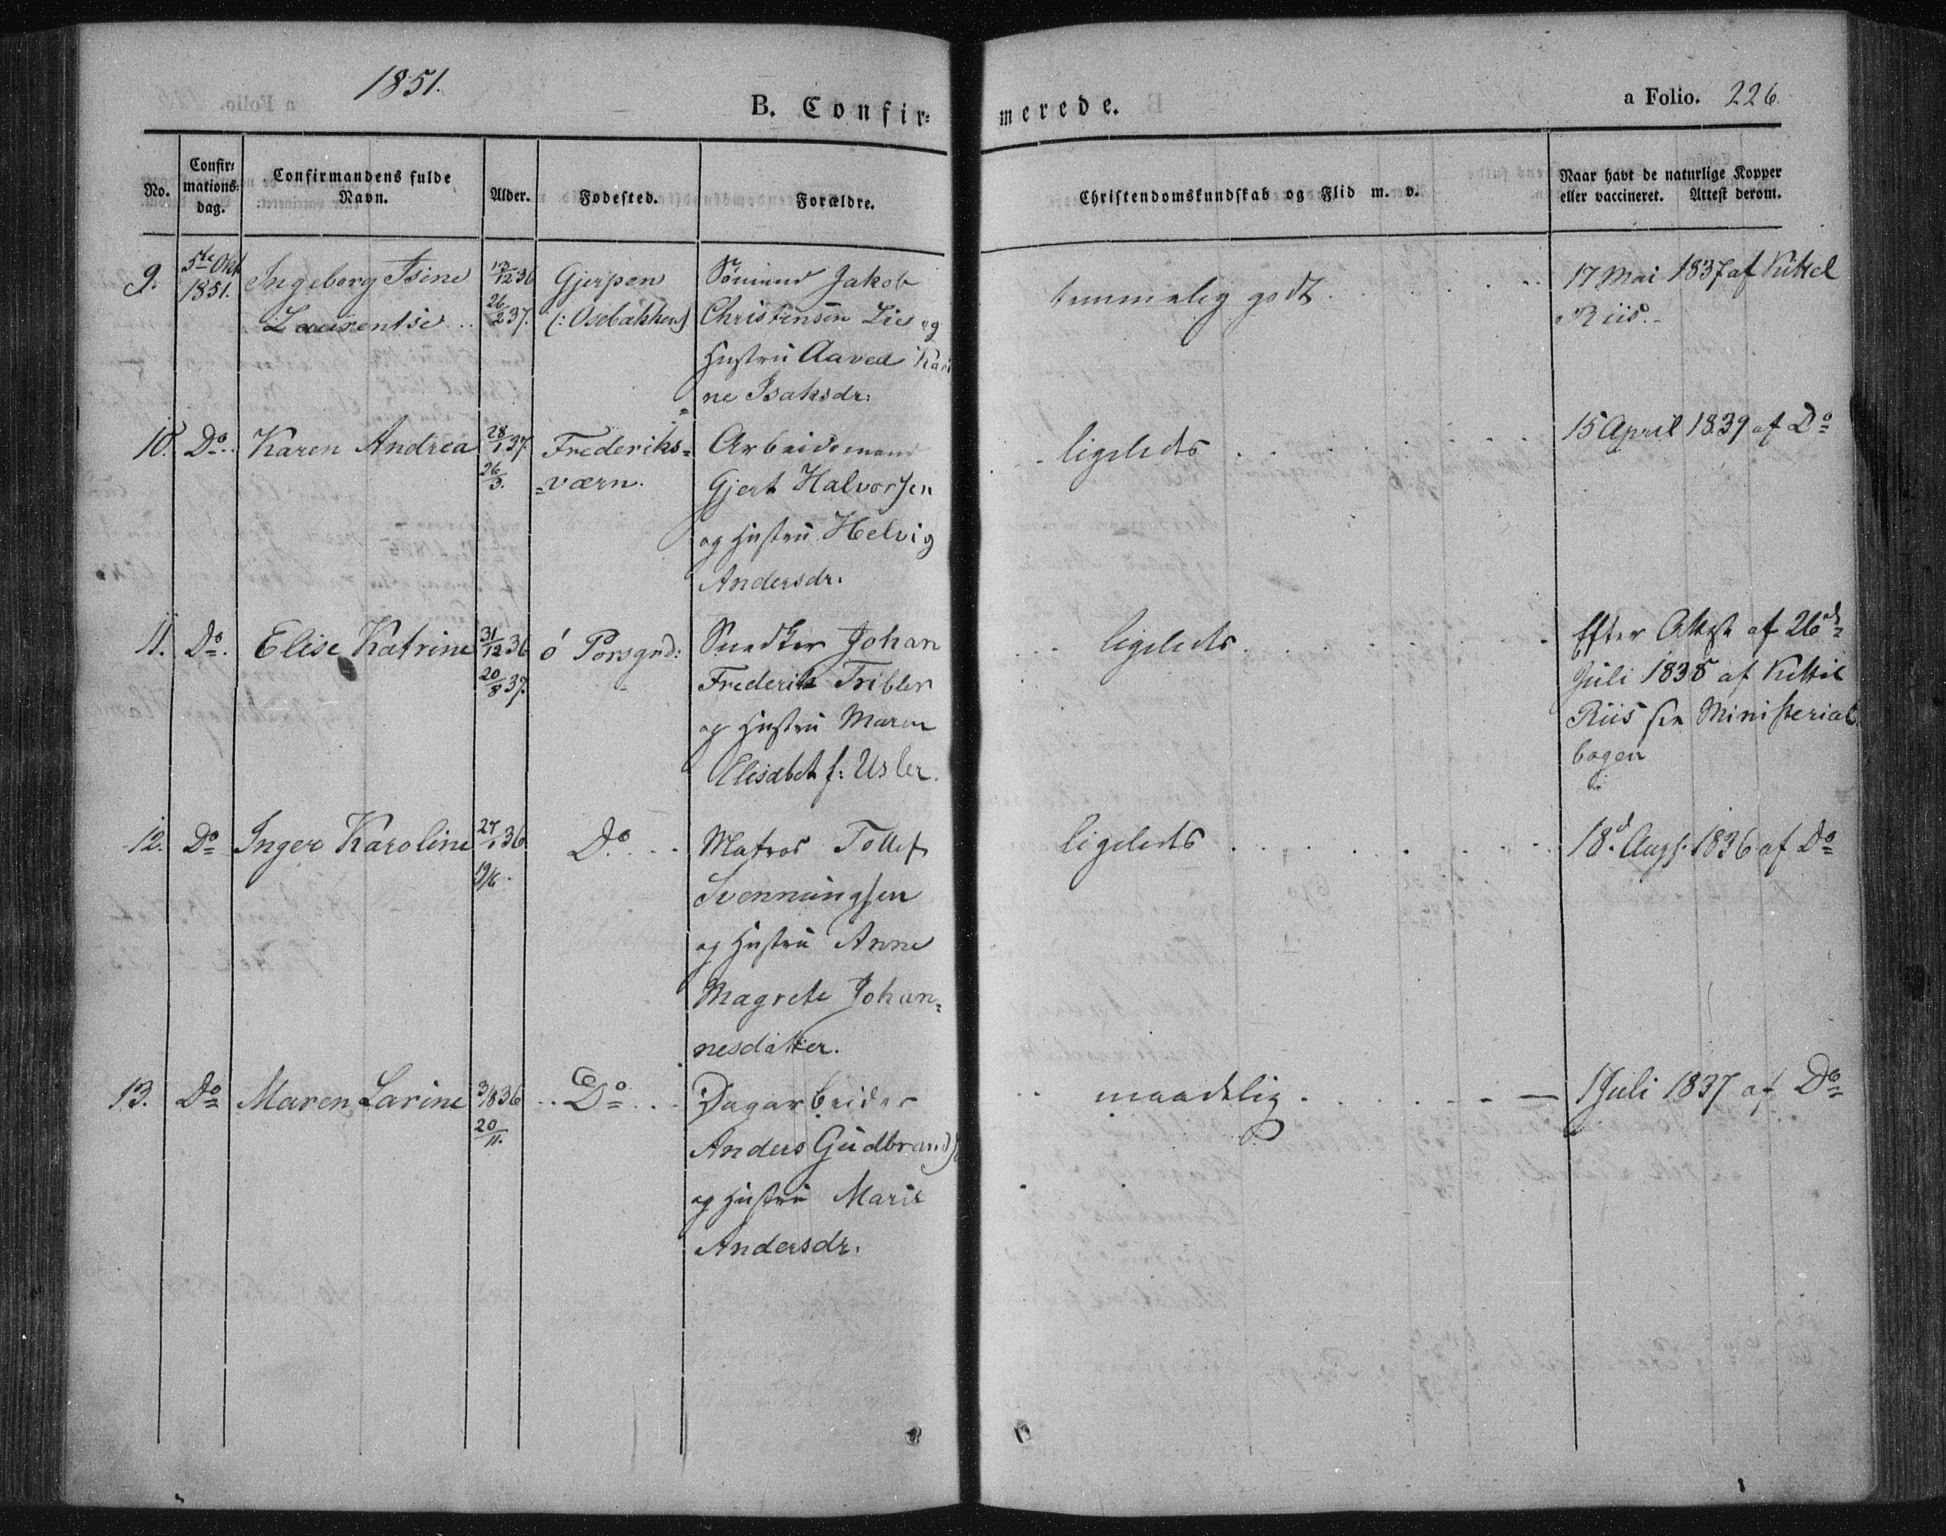 1851.
B. Confir-
merede.
a Folio. 226.
No.
Confir-
mations-
dag.
Confirmandens fulde
Navn.
Alder.
Fødested.
Forældre.
Christendomskundskab og Flid m. v.
Naar havt de naturlige Kopper
eller vaccineret. Attest derom.
9.
5te Okt
1851.
Ingeborg Isine
Laurentse
13/12 36
26/2 37.
Gjerpen
(: Osebakken)
Sömand Jakob
Christensen Lie og
Hustru Aaved Kari
ne Isaksdr:
temmelig godt
17 Mai 1837 af Kittel
Riis.
10.
Do.
Karen Andrea
28/1 37.
26/3.
Frederiks-
værn.
Arbeidsmand
Gjert Halvorsen
og Hustru Helvig
Andersdr.
ligeleds
15 April 1839 af Do
11.
Do.
Elise Katrine
31/12 36
20/8 37.
ö Porsgrd:
Snedker Johan
Frederik Tribler
og Hustru Maren
Elisabet f: Usler.
ligeleds
Efter Attest af 26de
Juli 1838 af Kittil
Riis se Ministerial
bogen
12.
Do
Inger Karoline
27/1 36
19/6.
Do
Matros Tollef
Svenningsen
og Hustru Anne
Magrete Johan-
nesdatter.
ligeleds
18d Augs. 1836 af Do
13.
Do
Maren Larine
3/8 36
20/11.
Do
Dagarbeider
Anders Gudbrands
og Hustru Marie
Andersdr.
maadelig
1 Juli 1837 af Do